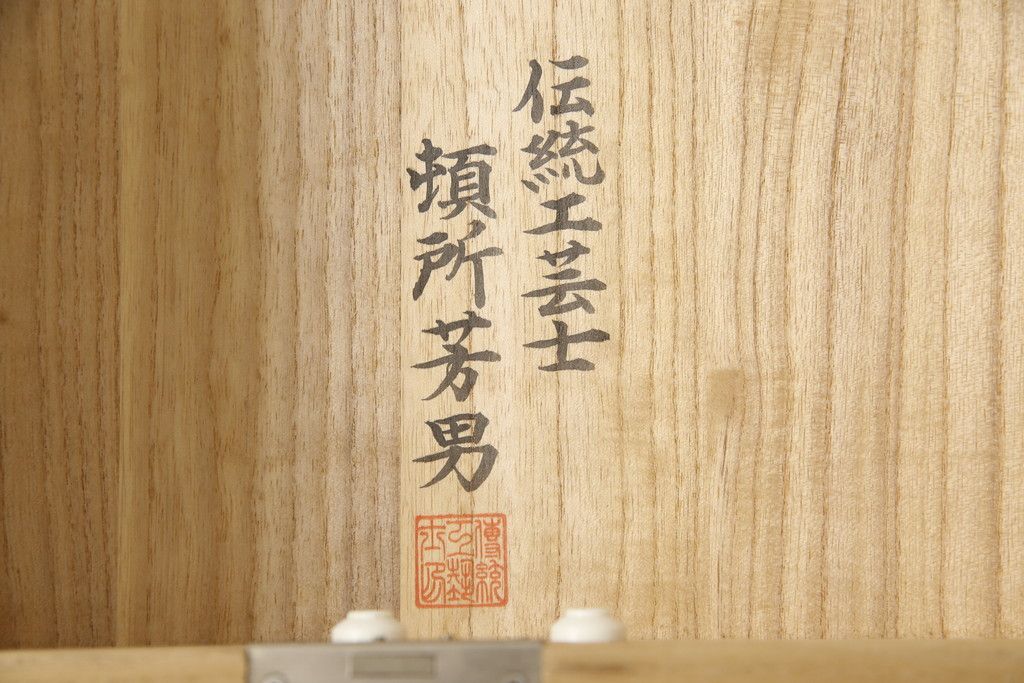 伝統工芸士
頓所芳男
傳統
工藝
士乃